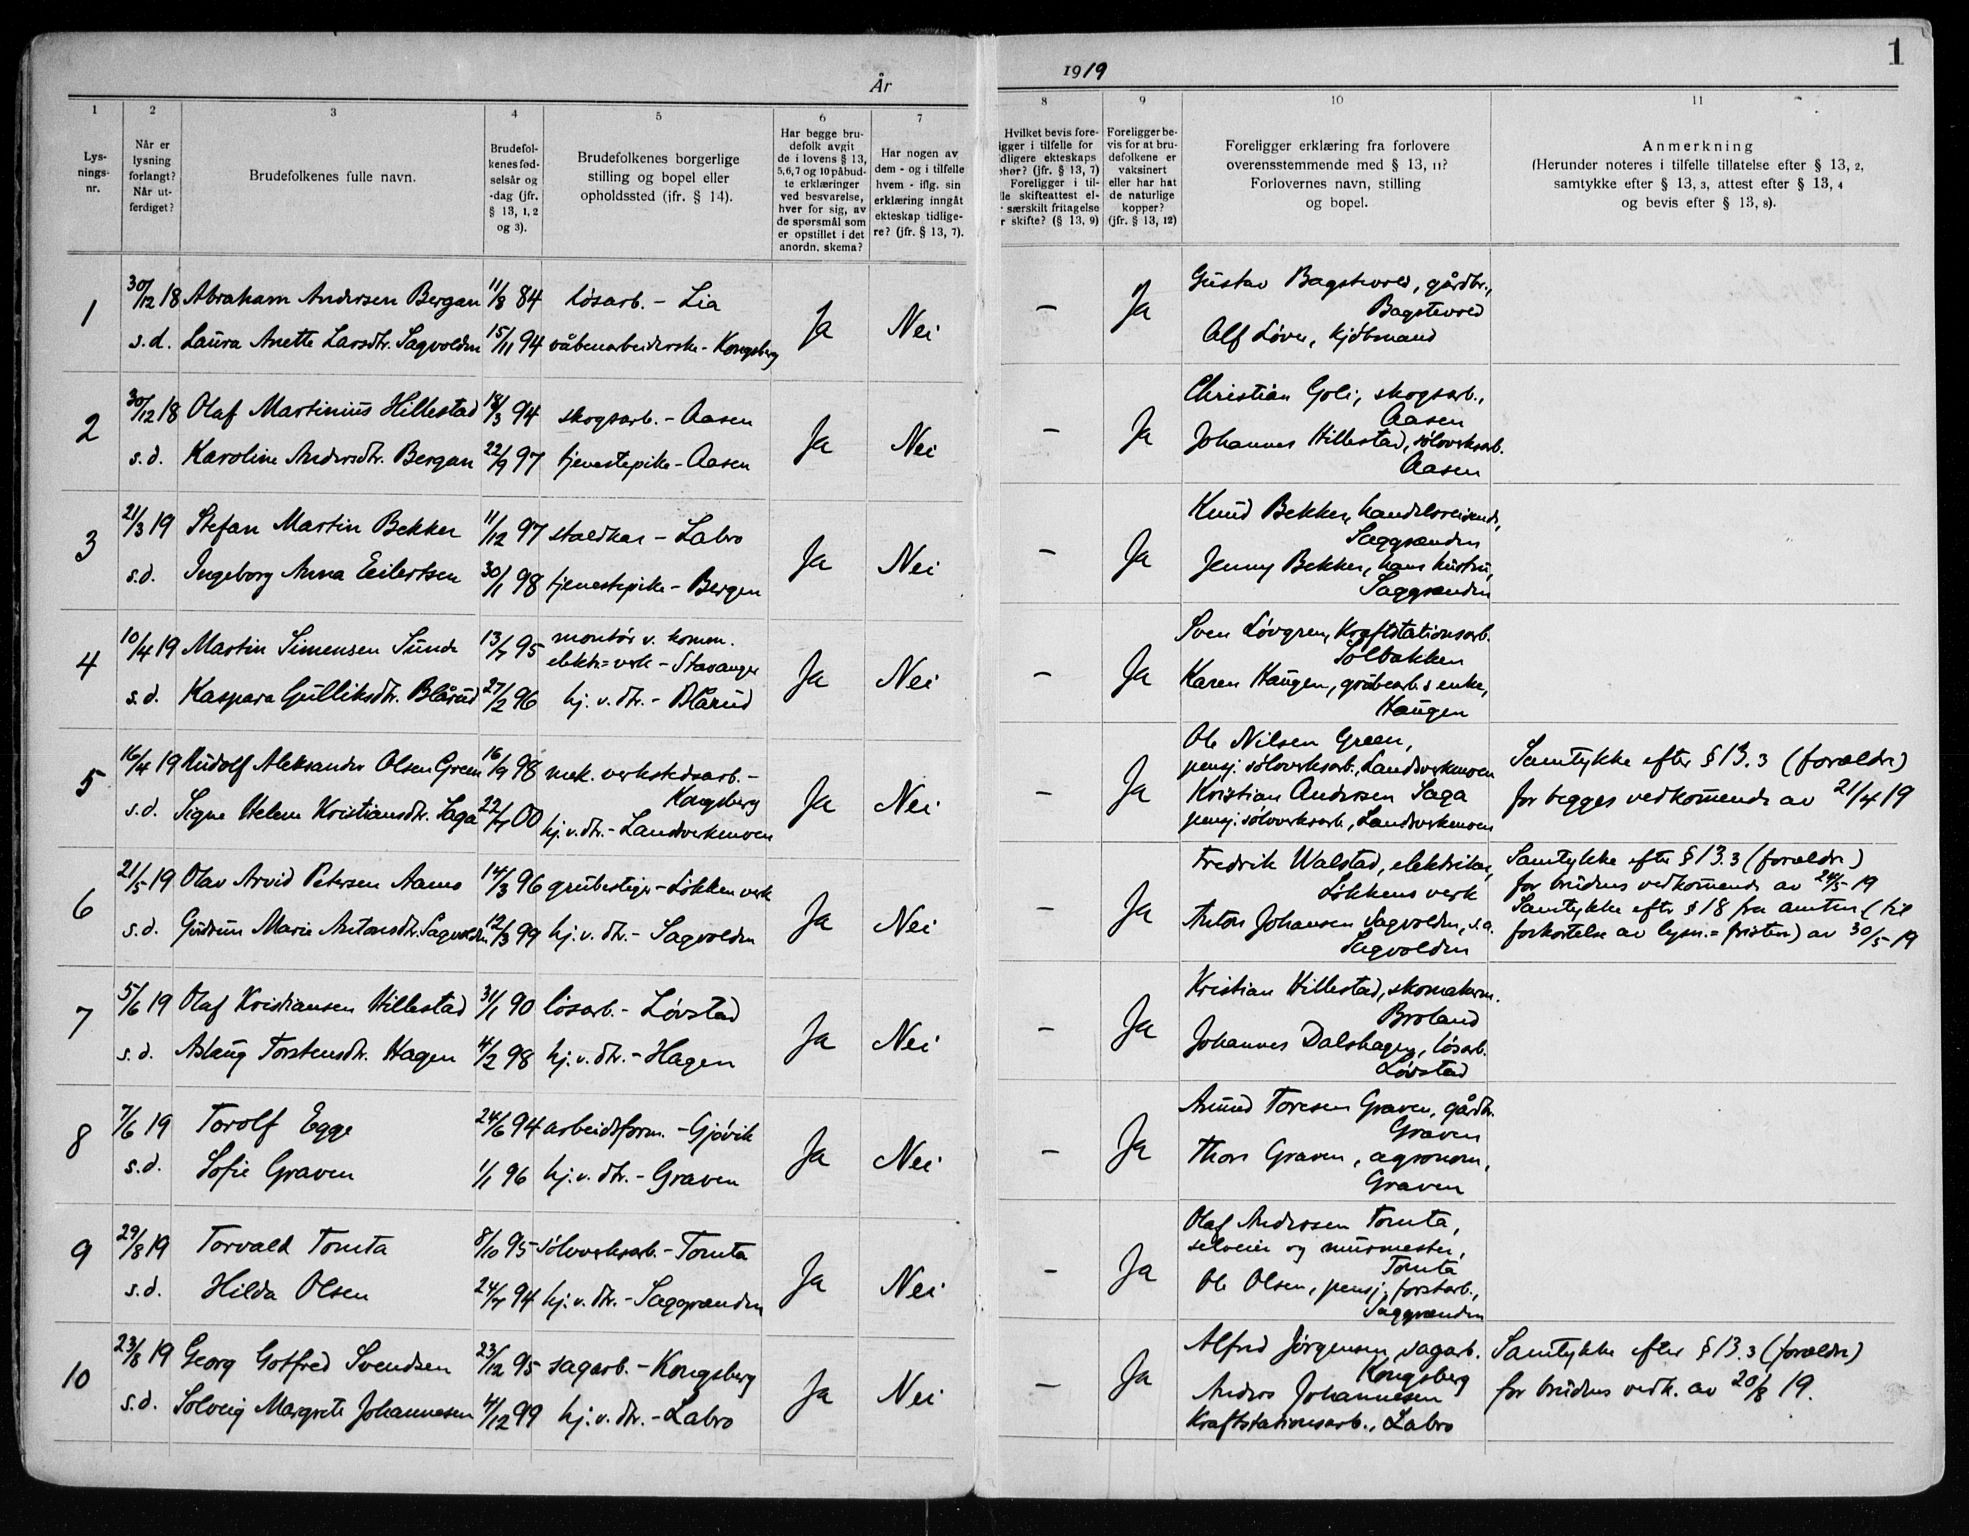 År
1919
1
1
2
3
4
5
6
7
8
9
10
11
Lys-
nings-
nr.
Når er
lysning
forlangt?
Når ut-
ferdiget?
Brudefolkenes fulle navn.
Brudefol-
kenes fød-
selsår og
-dag (jfr.
§ 13, 1, 2
og 3).
Brudefolkenes borgerlige
stilling og bopel eller
opholdssted (ifr. § 14).
Har begge bru-
defolk avgit
de i lovens § 13,
5,6,7 og 10 påbud-
te erklæringer
ved besvarelse,
hver for sig, av
de spørsmål som
er opstillet i det
anordn. skema?
Har nogen av
dem - og i tilfelle
hvem - iflg. sin
erklæring inngåt
ekteskap tidlige-
re? (jfr. § 13, 7).
Hvilket bevis fore-
igger i tilfelle for
dligere ekteskaps
phør? (jfr. § 13, 7)
Foreligger i til-
lle skifteattest el-
særskilt fritagelse
r skifte? (§ 13, 9)
Foreligger be-
vis for at bru-
defolkene er
vaksinert
eller har hat
de naturlige
kopper?
(jfr. § 13, 12)
Foreligger erklæring fra forlovere
overensstemmende med § 13, 11?
Forlovernes navn, stilling
og bopel.
Anmerkning
(Herunder noteres i tilfelle tillatelse efter § 13, 2,
samtykke efter § 13, 3, attest efter § 13, 4
og bevis efter § 13, 8).
1
30/12 18 Abraham Andersen Bergan 11/8 84 løsarb. - Lia
s.d. Laura Anette Larsdtr. Sagvolden 15/11 94 våbenarbeiderske - Kongsberg
Ja Nei – Ja
Gustav Bagstevold, gårdbr.,
Bagstevold
Alf Løver, kjøbmand
2
30/12 18 Olaf Martinius Hillestad 18/3 94 skogsarb. - Aasen
s.d. Karoline Andersdtr. Bergan 22/9 97 tjenestepike - Aasen
Ja Nei – Ja
Christian Goli, skogsarb.,
Aasen
Johannes Hillestad, sølvverksarb.
Aasen
3
21/3 19 Stefan Martin Bekker 11/12 97 staldkar - Labro
s.d. Ingeborg Anna Eilertsen 30/1 98 tjenestepike - Bergen
Ja Nei – Ja
Knud Bekker, handelsreisende,
Saggrænden
Jenny Bekker, hans hustru,
Saggrænden
4
10/4 19 Martin Simensen Sunde 13/7 95 montør v. komm.
elektr.=verk - Stavanger
s.d. Kaspara Gulliksdtr. Blårud 27/2 96 hj. v. dtr. - Blårud
Ja Nei – Ja
Sven Løvgren, Kraftstationsarb.
Solbakken
Karen Haugen, grubearb.s enke,
Haugen
5
16/4 19 Rudolf Aleksander Olsen Green 16/9 98 mek. verkstedsarb. -
Kongsberg
s.d. Signe Helene Kristiansdtr. Saga 22/7 00 hj. v. dtr. - Landsverkmoen
Ja Nei – Ja
Ole Nilsen Green,
pensj. sølvverksarb., Landsverkmoen
Kristian Andersen Saga
pensj. sølvverksarb., Landsverkmoen
Samtykke efter § 13.3 (forældre)
for begges vedkommende av 21/4 19
6
21/5 19 Olav Arvid Petersen Aamo 14/3 96 grubestiger - Løkken verk
s.d. Gudrun Marie Antonsdtr. Sagvolden 12/3 99 hj. v. dtr. - Sagvolden
Ja Nei – Ja
Fredrik Walstad, elektriker,
Løkkens verk
Anton Johansen Sagvolden, s.a.
Sagvolden
Samtykke efter § 13.3 (forældre)
for brudens vedkommende av 24/5 19
Samtykke efter § 18 fra amtm. (til
forkortelse av lysn.=fristen) av 30/5 19
7
5/6 19 Olaf Kristiansen Hillestad 31/1 90 løsarb. - Løvstad
s.d. Aslaug Torstensdtr. Hagen 4/2 98 hj. v. dtr. - Hagen
Ja Nei – Ja
Kristian Hillestad, skomakerm.
Broland
Johannes Dalshagen, løsarb.
Løvstad
8
7/6 19 Torolf Egge 24/6 94 arbeidsform. - Gjøvik
s.d. Sofie Graven 1/1 96 hj. v. dtr. - Graven
Ja Nei – Ja
Amund Toresen Graven, gårdbr.
Graven
Thore Graven, agronom,
Graven
9
29/8 19 Torvald Tomta 8/10 95 sølvverksarb. - Tomta
s.d. Hilda Olsen 24/7 94 hj. v. dtr. - Saggrænden
Ja Nei – Ja
Olaf Andersen Tomta,
selveier og murmester,
Tomta
Ole Olsen, pensj. forstarb.,
Saggrænden
10
23/8 19 Georg Gotfred Svendsen 23/12 95 sagarb. - Kongsberg
s.d. Solveig Margrete Johannesen 4/12 99 hj. v. dtr. - Labro
Ja Nei – Ja
Alfred Jørgensen, sagarb.
Kongsberg
Anders Johannesen
Kraftstationsarb., Labro
Samtykke efter § 13.3 (forældre)
for brudens vedk. av 20/8 19.